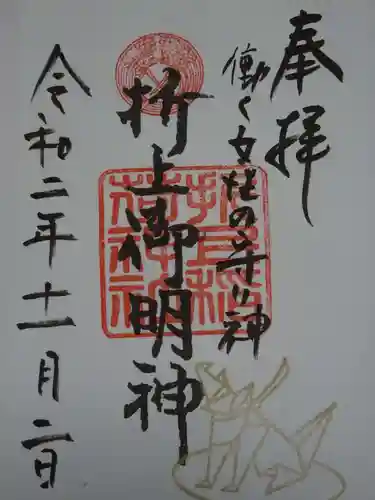 奉拝
働く女性の守り神
折上御明神
令和二年十一月二日